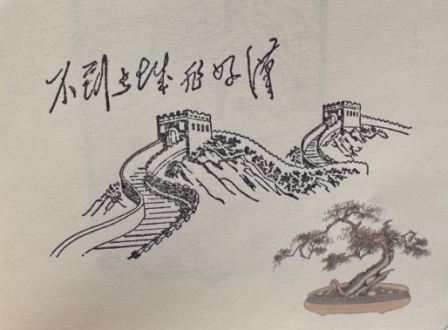 不到长城非好汉